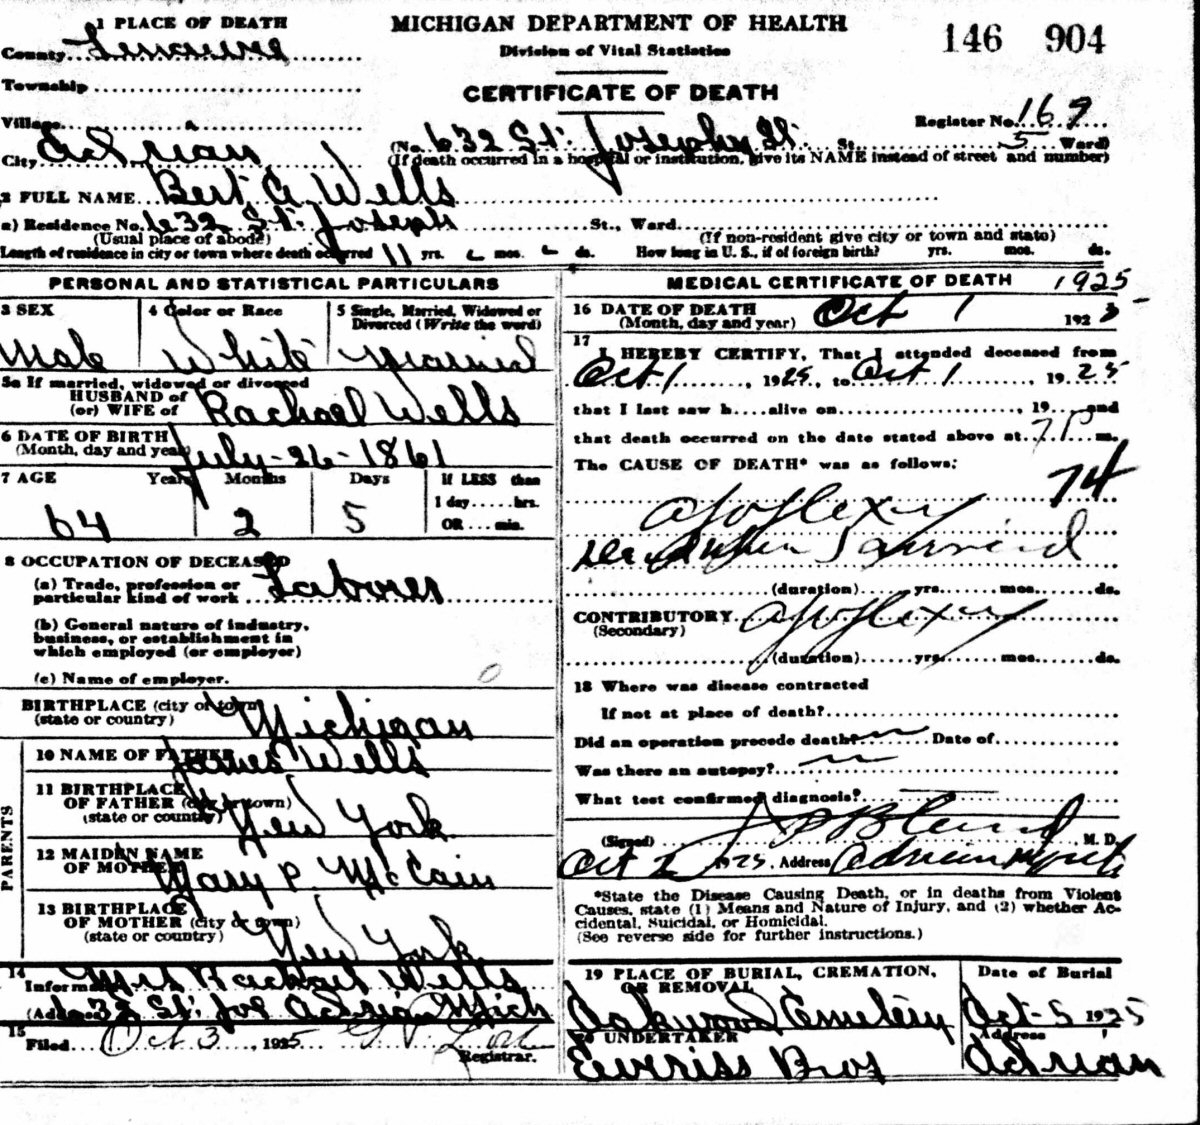 1 PLACE OF DEATH
County Lenawee
Township
Village
City Adrian
MICHIGAN DEPARTMENT OF HEALTH
Division of Vital Statistics
CERTIFICATE OF DEATH
146 904
Register No. 169
(No. 632 St. Joseph St. St. 5 Ward)
(If death occurred in a hospital or institution, give its NAME instead of street and number)
2 FULL NAME Bert A Wells
a) Residence No. 632 St. Joseph St., Ward
(Usual place of abode) (If non-resident give city or town and state)
Length of residence in city or town where death occurred 11 yrs. mos. ds. How long in U. S., if of foreign birth? yrs. mos. ds.
PERSONAL AND STATISTICAL PARTICULARS
3 SEX 4 Color or Race 5 Single, Married, Widowed or
Divorced (Write the word)
Male White Married
5a If married, widowed or divorced
HUSBAND of
(or) WIFE of Rachael Wells
6 DATE OF BIRTH
(Month, day and year) July-26-1861
7 AGE Years Months Days If LESS than
1 day hrs.
OR min.
64 2 5
8 OCCUPATION OF DECEASED
(a) Trade, profession or
particular kind of work Laborer
(b) General nature of industry,
business, or establishment in
which employed (or employer)
(c) Name of employer.
BIRTHPLACE (city or town)
(state or country) Michigan
PARENTS
10 NAME OF FATHER James Wells
11 BIRTHPLACE
OF FATHER (city or town)
(state or country) New York
12 MAIDEN NAME
OF MOTHER Mary P. McCain
13 BIRTHPLACE
OF MOTHER (city or town)
(state or country) New York
14
Informant Mrs Rachael Wells
(Address) 632 St. Joe Adrian Mich
15
Filed Oct 3, 1925
Registrar.
MEDICAL CERTIFICATE OF DEATH 1925
16 DATE OF DEATH
(Month, day and year) Oct 1 1925
17
I HEREBY CERTIFY, That I attended deceased from
Oct 1, 1925, to Oct 1 1925
that I last saw h alive on , 19 and
that death occurred on the date stated above at 7 P m.
The CAUSE OF DEATH* was as follows:
74
Apoplexy
(duration) yrs. mos. ds.
CONTRIBUTORY Apoplexy
(Secondary)
(duration) yrs. mos. ds.
18 Where was disease contracted
If not at place of death?
Did an operation precede death? no Date of
Was there an autopsy? no
What test confirmed diagnosis?
(Signed) M. D.
Oct 2, 1925, Address Adrian Mich
*State the Disease Causing Death, or in deaths from Violent
Causes, state (1) Means and Nature of Injury, and (2) whether Ac-
cidental, Suicidal, or Homicidal.
(See reverse side for further instructions.)
19 PLACE OF BURIAL, CREMATION,
OR REMOVAL
Oakwood Cemetery
Date of Burial
Oct-5 1925
20 UNDERTAKER
Bros
Address
Adrian